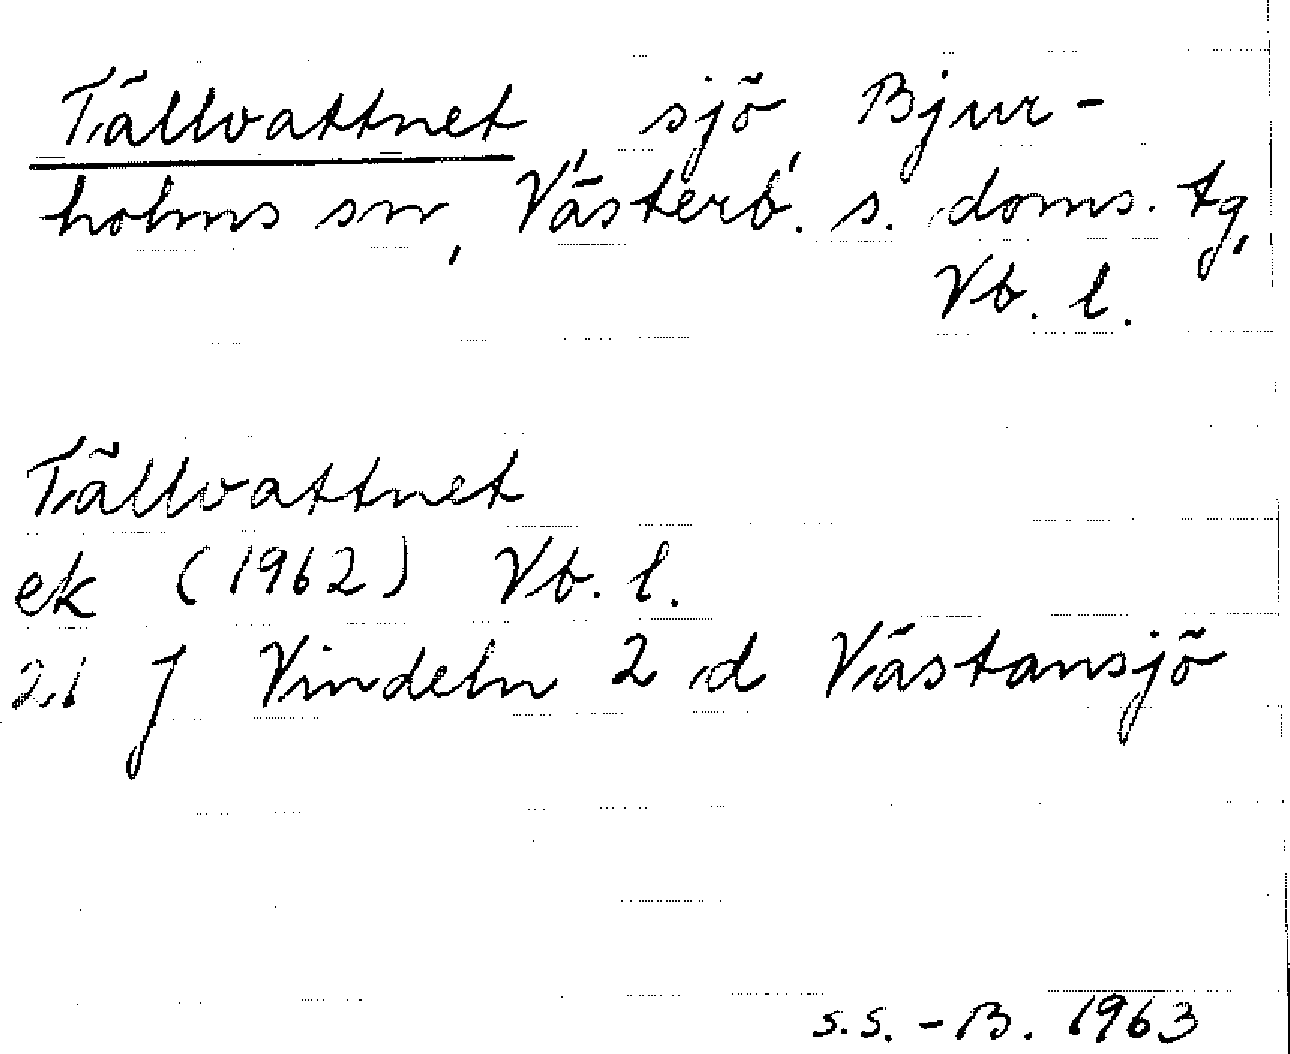 Tällvattnet, sjö, Bjur-
holms sn, Västerb. s. doms. tg,
Vb. l.
Tällvattnet
ek (1962) Vb. l.
21 J Vindeln 2 d Västansjö
S.S. - B. 1963